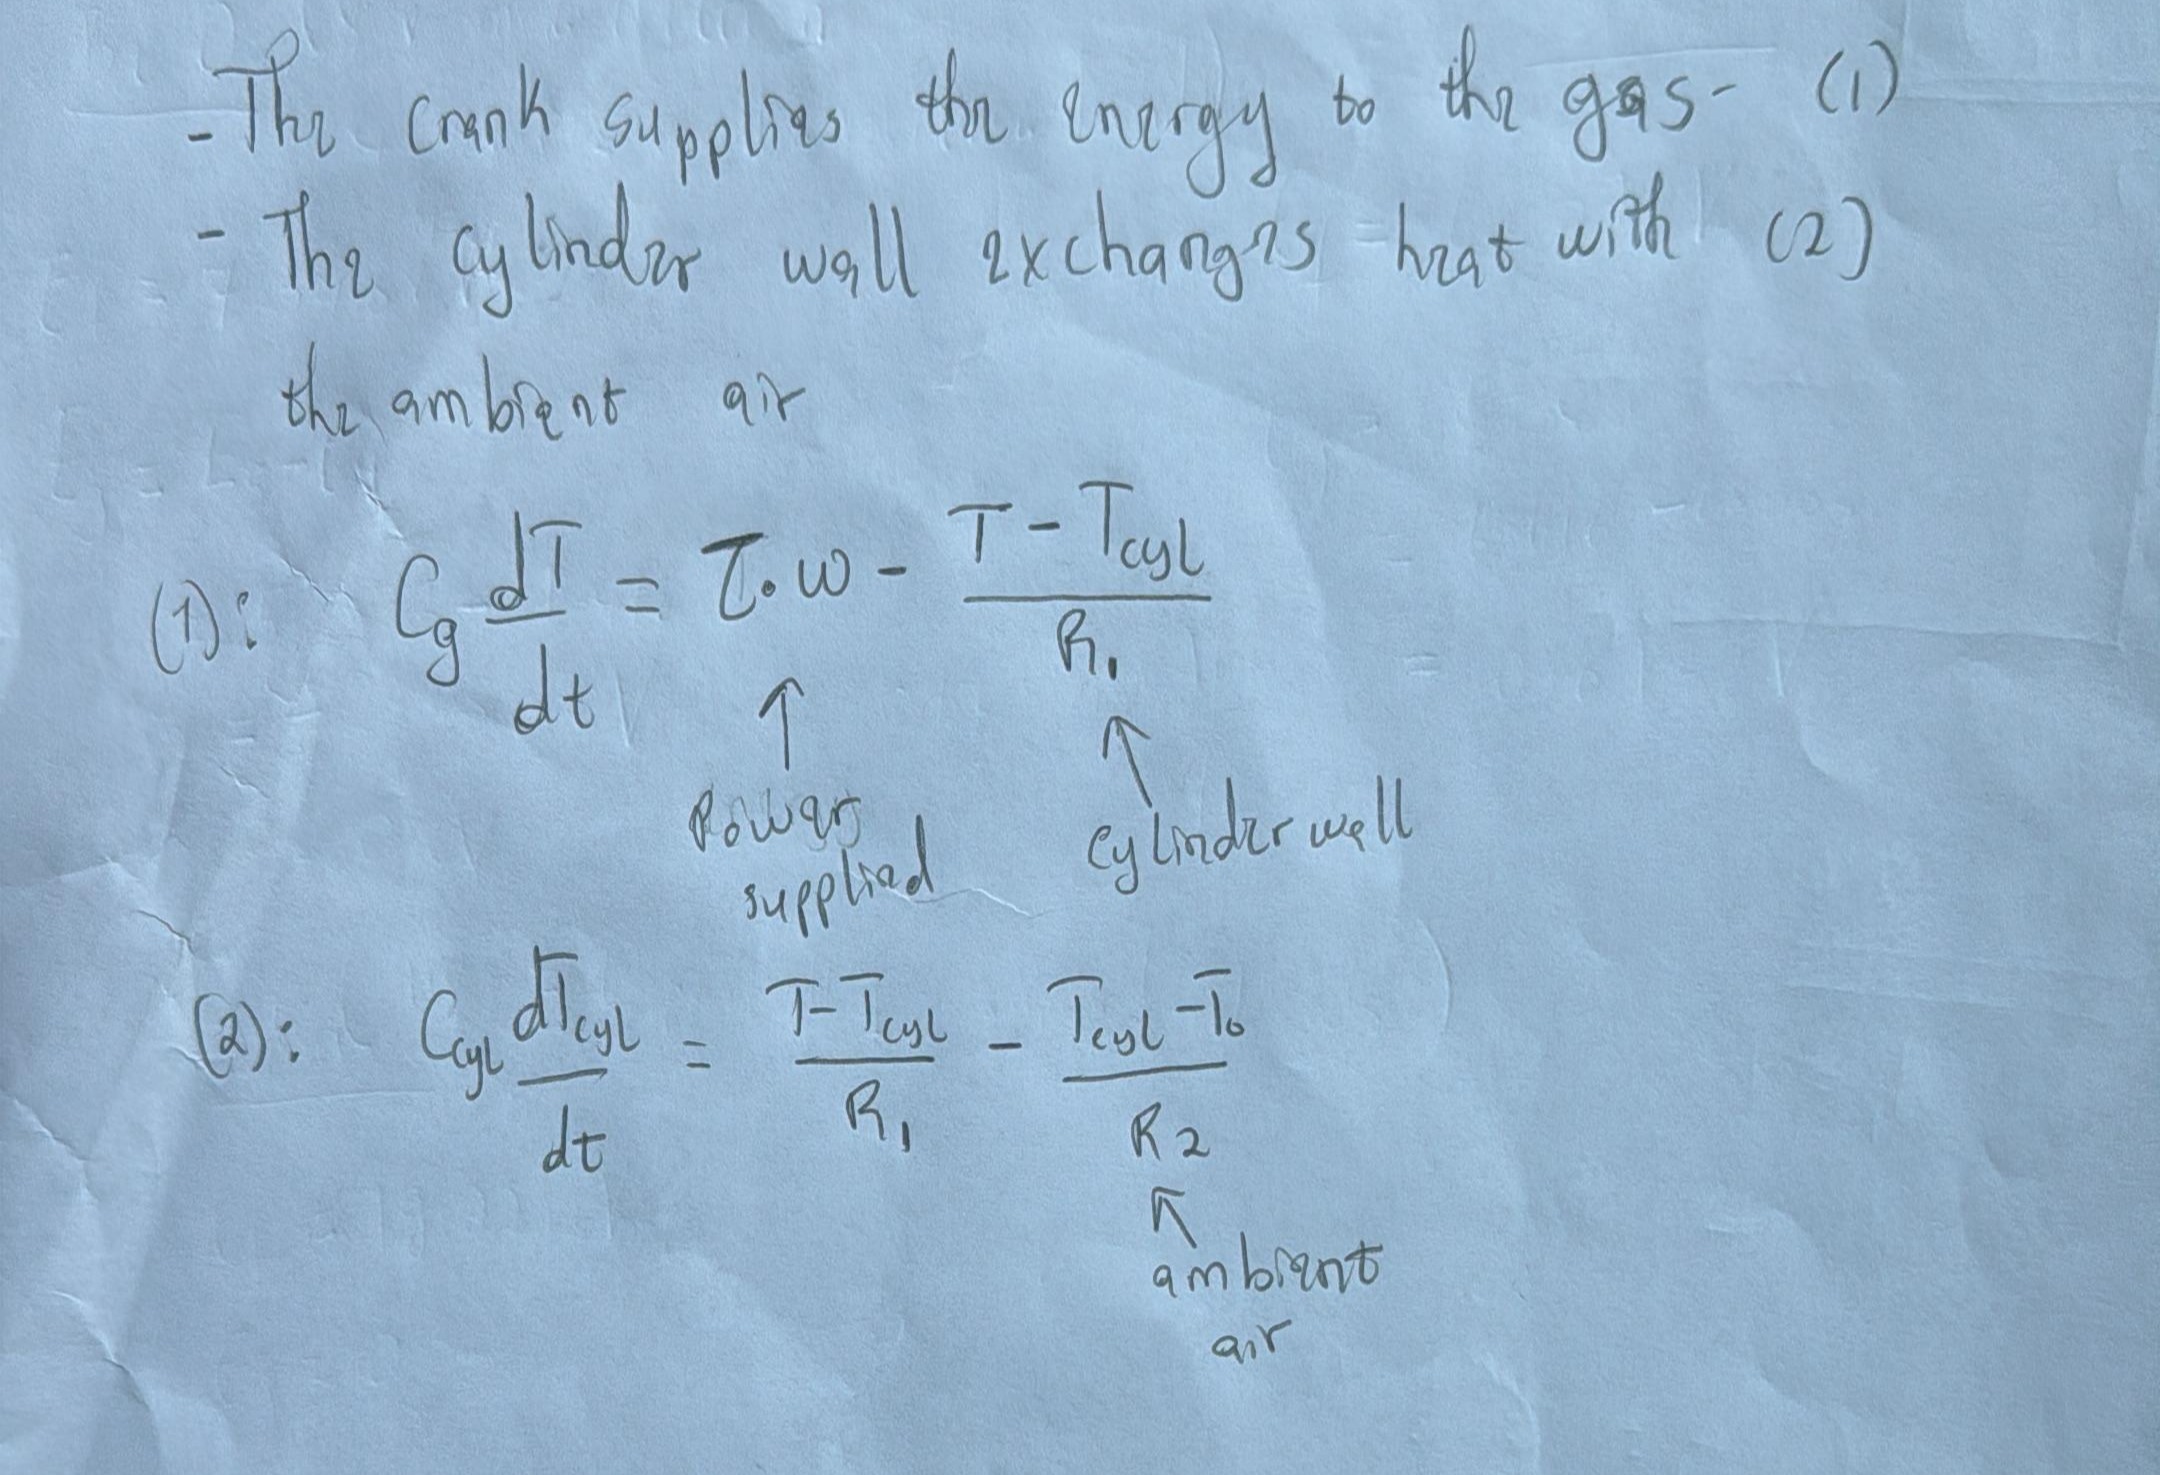 - The crank supplies the energy to the gas - (1)
- The cylinder wall exchanges heat with (2)
the ambient air
(1): C_g dT/dt = τ·ω - (T - T_cyl)/R_1
↑ ↑
Power cylinder wall
supplied
(2): C_cyl dT_cyl/dt = (T - T_cyl)/R_1 - (T_cyl - T_0)/R_2
↑
ambient
air